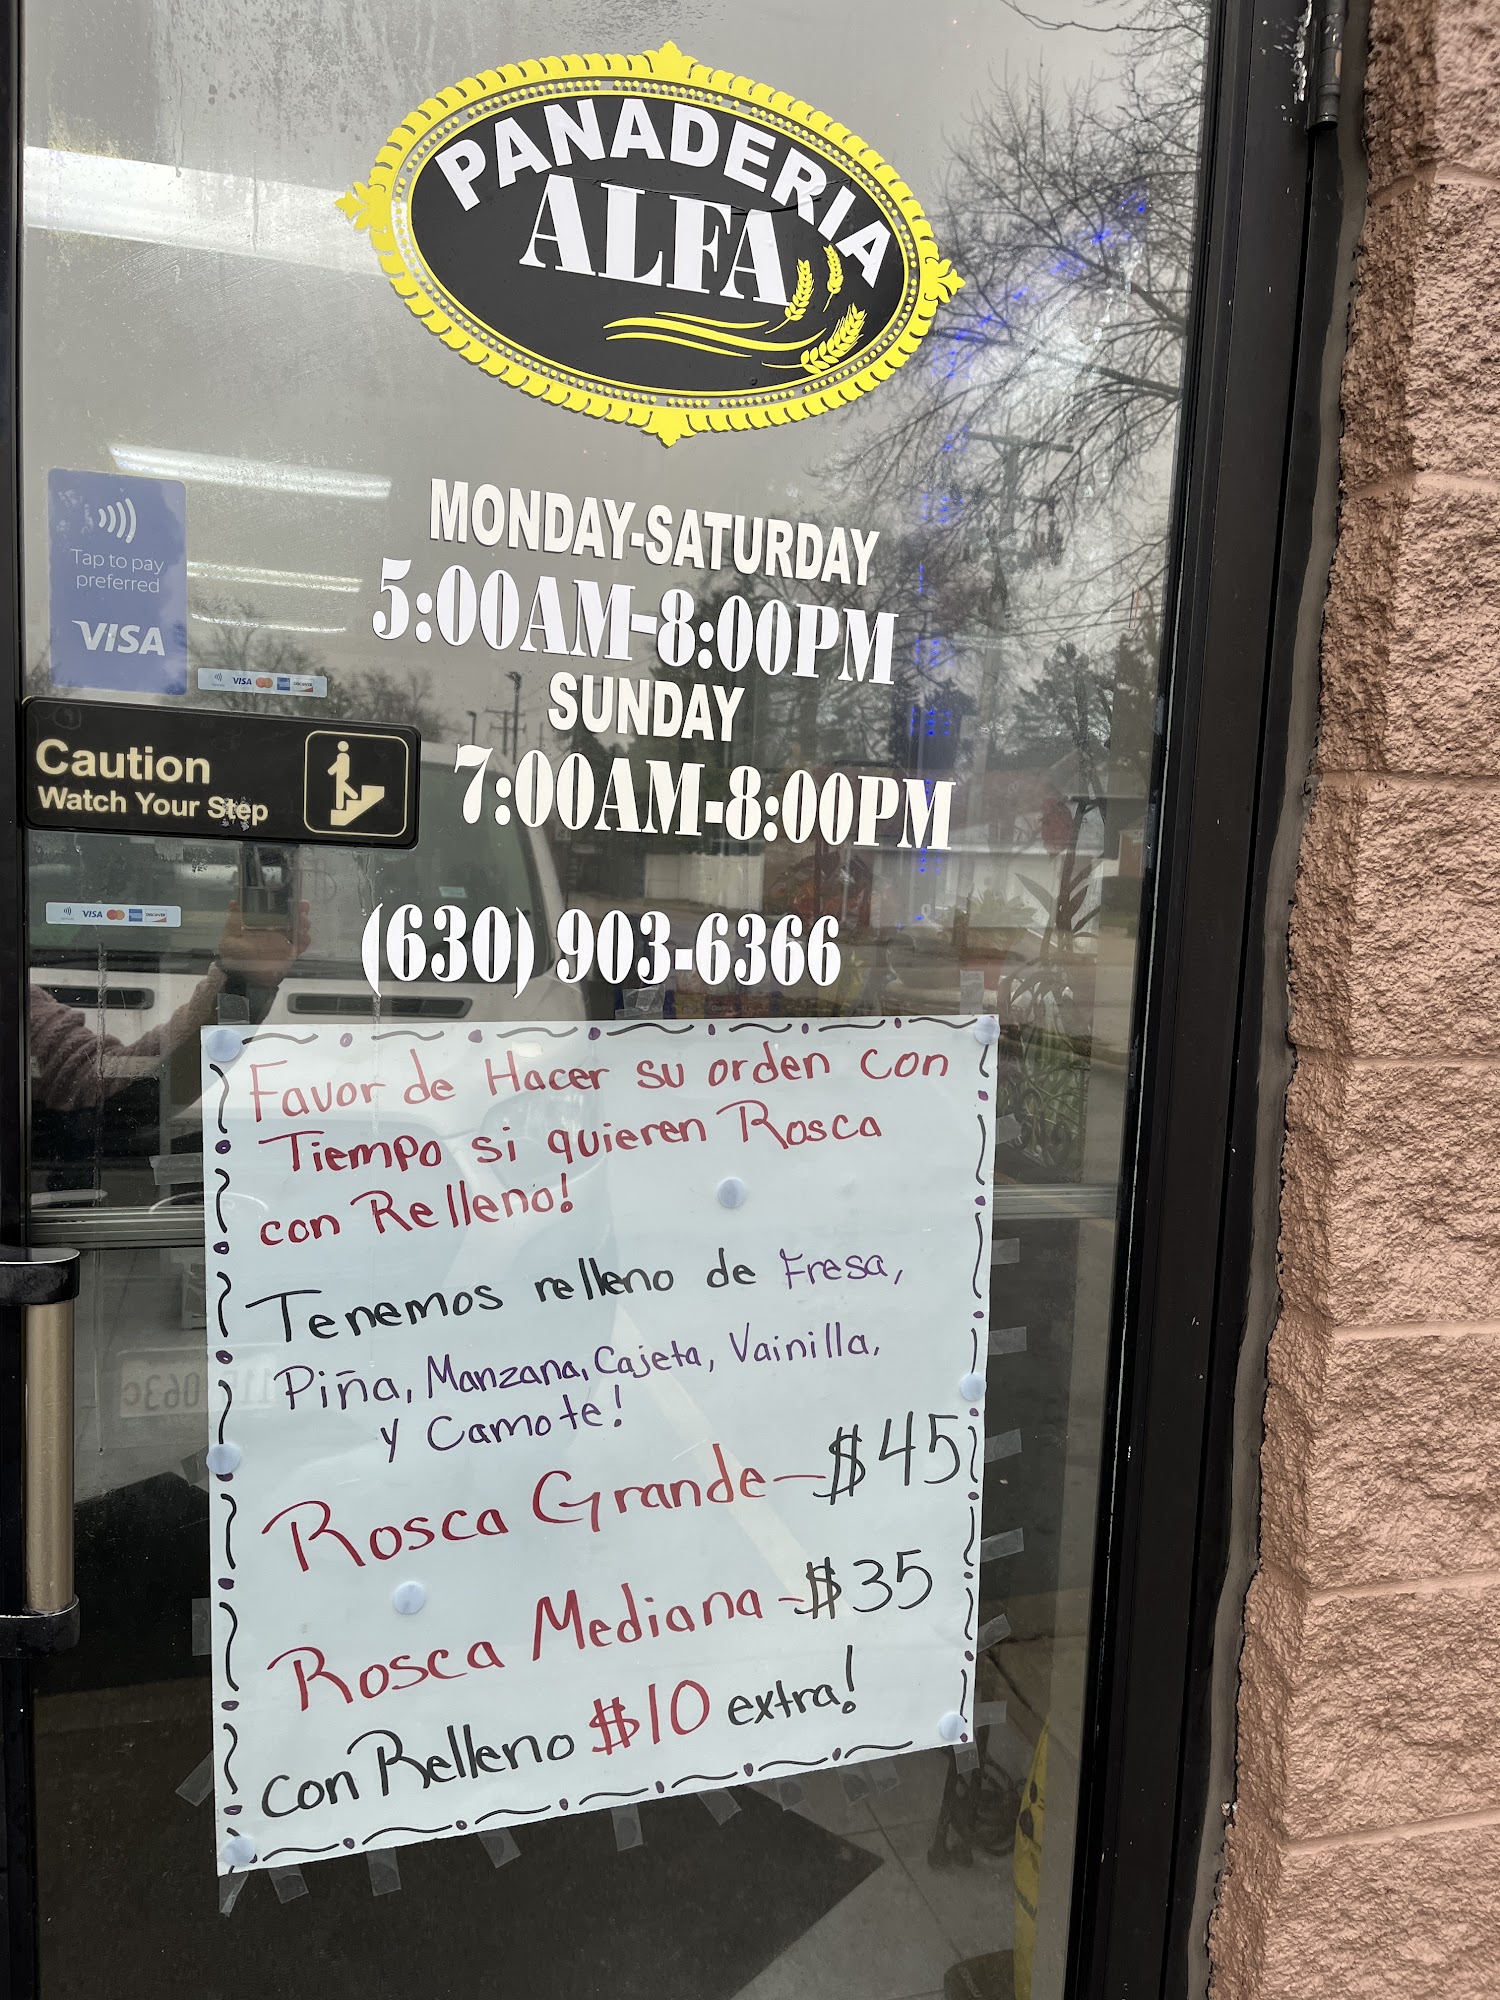 PANADERIA
ALFA
MONDAY-SATURDAY
5:00AM-8:00PM
SUNDAY
7:00AM-8:00PM
(630) 903-6366
Tap to pay
preferred
VISA
VISA DISCOVER
Caution
Watch Your Step
VISA DISCOVER
Favor de Hacer su orden con
Tiempo si quieren Rosca
con Relleno!
Tenemos relleno de Fresa,
Piña, Manzana, Cajeta, Vainilla,
y Camote!
Rosca Grande - $45
Rosca Mediana - $35
con Relleno $10 extra!